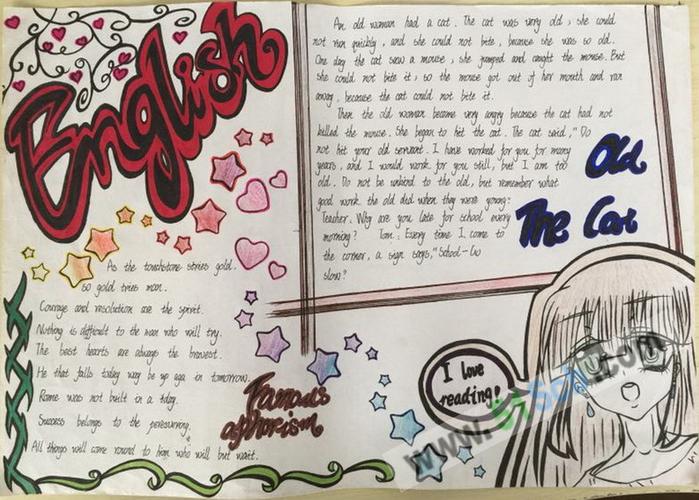 English
An old woman had a cat. The cat was very old, she could
not run quickly, and she could not bite, because she was so old.
One day the cat saw a mouse, she jumped and caught the mouse. But
she could not bite it, so the mouse got out of her mouth and ran
away, because the cat could not bite it.
Then the old woman became very angry because the cat had not
killed the mouse. She began to hit the cat. The cat said, "Do
not hit your old servant. I have worked for you for many
years, and I would work for you still, but I am too
old. Do not be unkind to the old, but remember what
good work the old did when they were young.
Teacher: Why are you late for school every
morning? Tom: Every time I come to
the corner, a sign says, "School-Go
slow".
Old
The Cat
As the touchstone stries gold,
so gold tries man.
Courage and resolution are the spirit.
Nothing is difficult to the man who will try.
The best hearts are always the bravest.
He that falls today may be up aga in tomorrow.
Rome was not built in a tday.
Success belongs to the perservring.
All things will come round to him who will but wait.
Famous
aphorism
I love
reading!